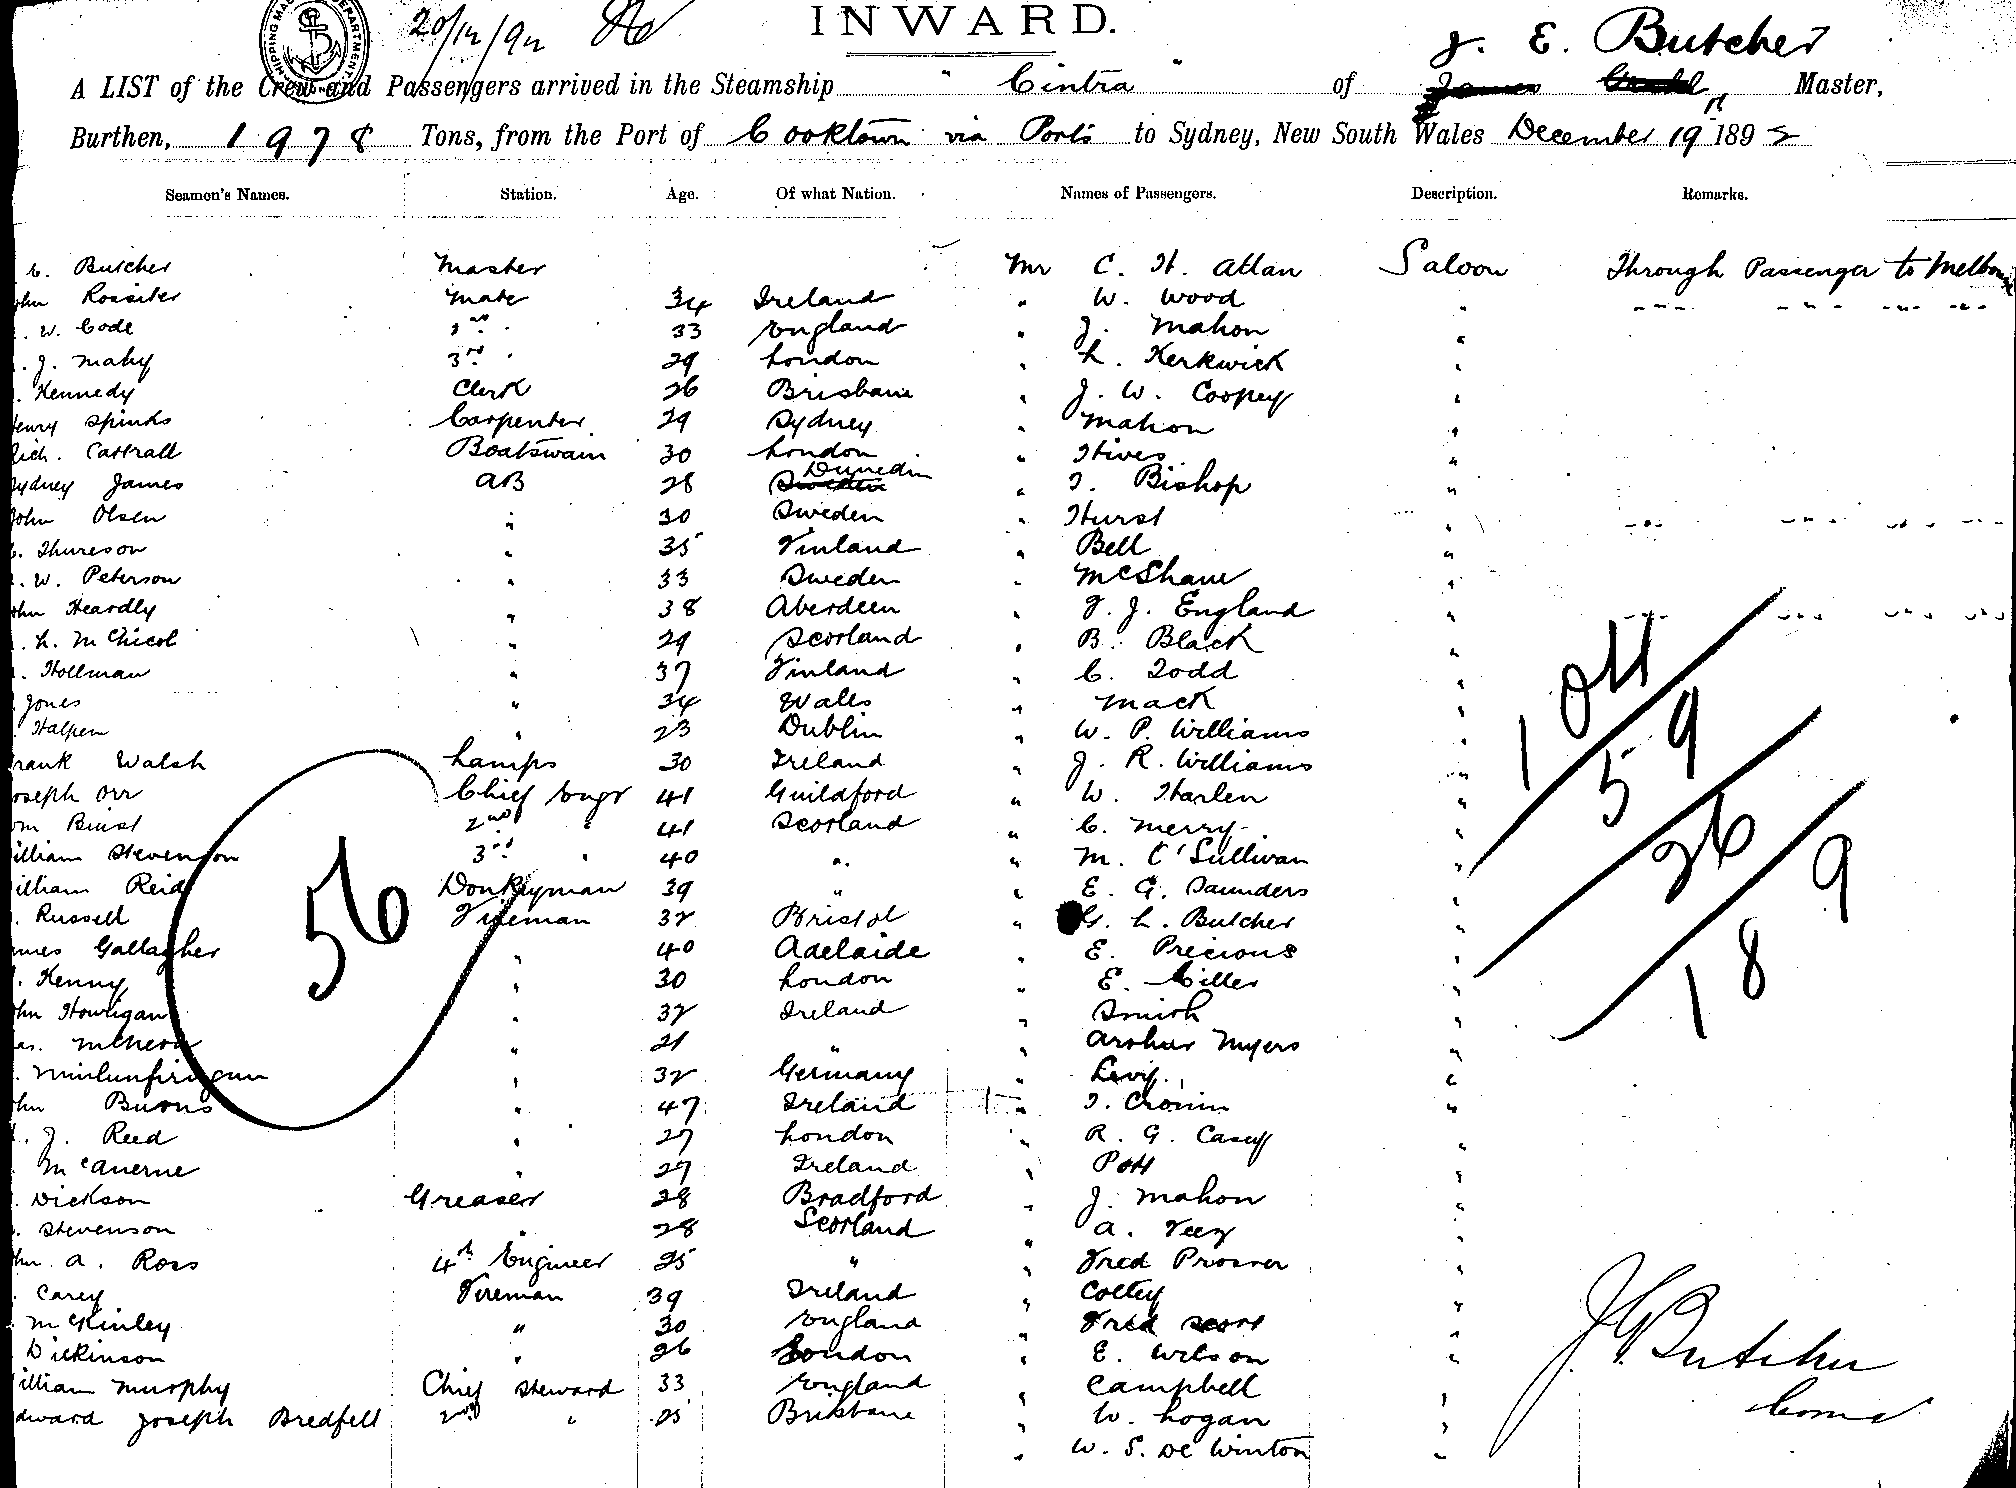 20/12/92
INWARD.
J. E. Butcher
A LIST of the Crew and Passengers arrived in the Steamship " Cintra " of Master,
Burthen, 1978 Tons, from the Port of Cooktown via Ports to Sydney, New South Wales December 19th 1892
Seamen's Names. Station. Age. Of what Nation. Names of Passengers. Description. Remarks.
Butcher Master Mr C. H. Allan Saloon Through Passenger to Melbou
ohn Rossiter Mate 34 Ireland " W. Wood "
W. Code 2nd " 33 England " J. Mahon "
J. Mahy 3rd " 29 London " L. Kerkwick "
Kennedy Clerk 26 Brisbane " J. W. Coopey "
enry Spinks Carpenter 29 Sydney " Mahon "
Rich. Cattrall Boatswain 30 London " Hives "
Sydney James AB 28 Sweden Dunedin " T. Bishop "
John Olsen " 30 Sweden " Hurst "
Thureson " 35 Finland " Bell "
W. Peterson " 33 Sweden " McShane "
ohn Heardly " 38 Aberdeen " T. J. England "
L. McNicol " 29 Scotland " B. Black "
Hollman " 37 Finland " C. Todd "
Jones " 34 Wales " Mack "
Halpen " 23 Dublin " W. P. Williams "
rank Walsh Lamps 30 Ireland " J. R. Williams "
oseph Orr Chief Engr 41 Guildford " W. Harlen "
2nd " 41 Scotland " C. Merry "
illiam Stevenson 3rd " 40 " " M. O'Sullivan "
illiam Reid Donkeyman 39 " " E. G. Saunders "
Russell Fireman 32 Bristol " G. L. Butcher "
ames Gallagher " 40 Adelaide " E. Precious "
Kenny " 30 London " E. Miller "
ohn Howigan " 32 Ireland " Smith "
" 21 " " Arthur Myers "
" 32 Germany " Levy "
ohn Burns " 47 Ireland " T. Cronin "
J. Reed " 27 London " R. G. Casey "
McAnerne " 27 Ireland " Pott "
Dickson Greaser 28 Bradford " J. Mahon "
Stevenson " 28 Scotland " A. Veey "
ohn A. Ross 4th Engineer 25 " " Fred Prosser "
Carey Fireman 39 Ireland " Coltey "
McKinley " 30 England " Fred Scott "
Dickinson " 26 London " E. Wilson "
illiam Murphy Chief Steward 33 England " Campbell "
dward Joseph Bredfell 2nd " 25 Brisbane " W. Logan "
" W. S. De Winton "
56
104
59
26
189
J E Butcher
Comd